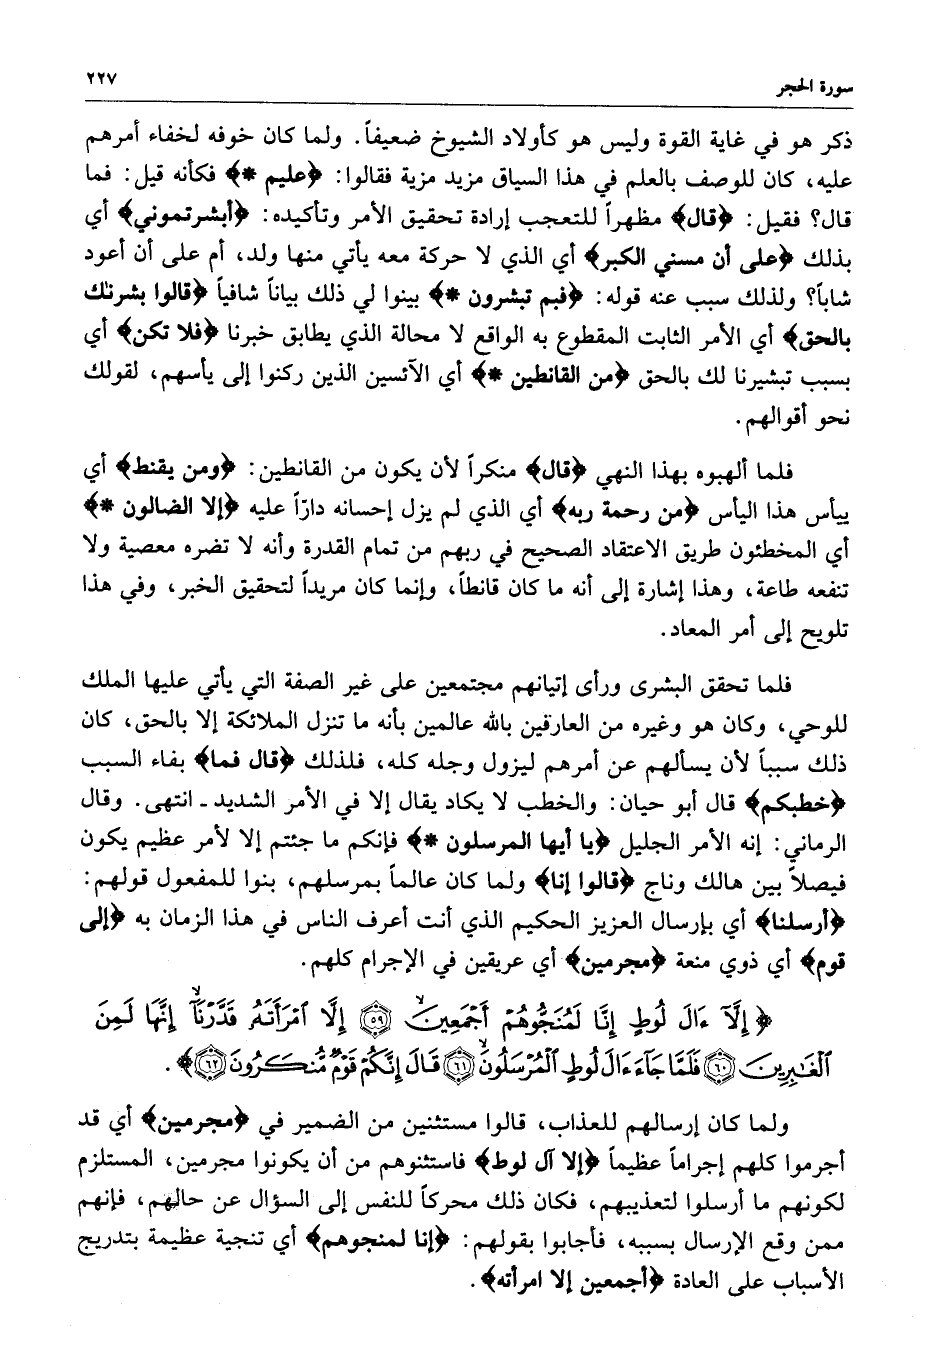 سورة الحجر ٢٢٧
ذكر هو في غاية القوة وليس هو كأولاد الشيوخ ضعيفاً. ولما كان خوفه لخفاء أمرهم
عليه، كان للوصف بالعلم في هذا السياق مزيد مزية فقالوا: ﴿عليم *﴾ فكأنه قيل: فما
قال؟ فقيل: ﴿قال﴾ مظهراً للتعجب إرادة تحقيق الأمر وتأكيده: ﴿أبشرتموني﴾ أي
بذلك ﴿على أن مسني الكبر﴾ أي الذي لا حركة معه يأتي منها ولد، أم على أن أعود
شاباً؟ ولذلك سبب عنه قوله: ﴿فبم تبشرون *﴾ بينوا لي ذلك بياناً شافياً ﴿قالوا بشرنك
بالحق﴾ أي الأمر الثابت المقطوع به الواقع لا محالة الذي يطابق خبرنا ﴿فلا تكن﴾ أي
بسبب تبشيرنا لك بالحق ﴿من القانطين *﴾ أي الآئسين الذين ركنوا إلى يأسهم، لقولك
نحو أقوالهم.
فلما ألهبوه بهذا النهي ﴿قال﴾ منكراً لأن يكون من القانطين: ﴿ومن يقنط﴾ أي
ييأس هذا اليأس ﴿من رحمة ربه﴾ أي الذي لم يزل إحسانه دارّاً عليه ﴿إلا الضالون *﴾
أي المخطئون طريق الاعتقاد الصحيح في ربهم من تمام القدرة وأنه لا تضره معصية ولا
تنفعه طاعة، وهذا إشارة إلى أنه ما كان قانطاً، وإنما كان مريداً لتحقيق الخبر، وفي هذا
تلويح إلى أمر المعاد.
فلما تحقق البشرى ورأى إتيانهم مجتمعين على غير الصفة التي يأتي عليها الملك
للوحي، وكان هو وغيره من العارفين بالله عالمين بأنه ما تنزل الملائكة إلا بالحق، كان
ذلك سبباً لأن يسألهم عن أمرهم ليزول وجله كله، فلذلك ﴿قال فما﴾ بفاء السبب
﴿خطبكم﴾ قال أبو حيان: والخطب لا يكاد يقال إلا في الأمر الشديد - انتهى. وقال
الرماني: إنه الأمر الجليل ﴿يا أيها المرسلون *﴾ فإنكم ما جئتم إلا لأمر عظيم يكون
فيصلاً بين هالك وناج ﴿قالوا إنا﴾ ولما كان عالماً بمرسلهم، بنوا للمفعول قولهم:
﴿أرسلنا﴾ أي بإرسال العزيز الحكيم الذي أنت أعرف الناس في هذا الزمان به ﴿إلى
قوم﴾ أي ذوي منعة ﴿مجرمين﴾ أي عريقين في الإجرام كلهم.
﴿ إِلَّآ ءَالَ لُوطٍ إِنَّا لَمُنَجُّوهُمْ أَجْمَعِينَ ۙ ٥٩ إِلَّا ٱمْرَأَتَهُۥ قَدَّرْنَآ ۙ إِنَّهَا لَمِنَ
ٱلْغَٰبِرِينَ ٦٠ فَلَمَّا جَآءَ ءَالَ لُوطٍ ٱلْمُرْسَلُونَ ۙ ٦١ قَالَ إِنَّكُمْ قَوْمٌ مُّنكَرُونَ ٦٢ ﴾.
ولما كان إرسالهم للعذاب، قالوا مستثنين من الضمير في ﴿مجرمين﴾ أي قد
أجرموا كلهم إجراماً عظيماً ﴿إلا آل لوط﴾ فاستثنوهم من أن يكونوا مجرمين، المستلزم
لكونهم ما أرسلوا لتعذيبهم، فكان ذلك محركاً للنفس إلى السؤال عن حالهم، فإنهم
ممن وقع الإرسال بسببه، فأجابوا بقولهم: ﴿إنا لمنجوهم﴾ أي تنجية عظيمة بتدريج
الأسباب على العادة ﴿أجمعين إلا امرأته﴾.